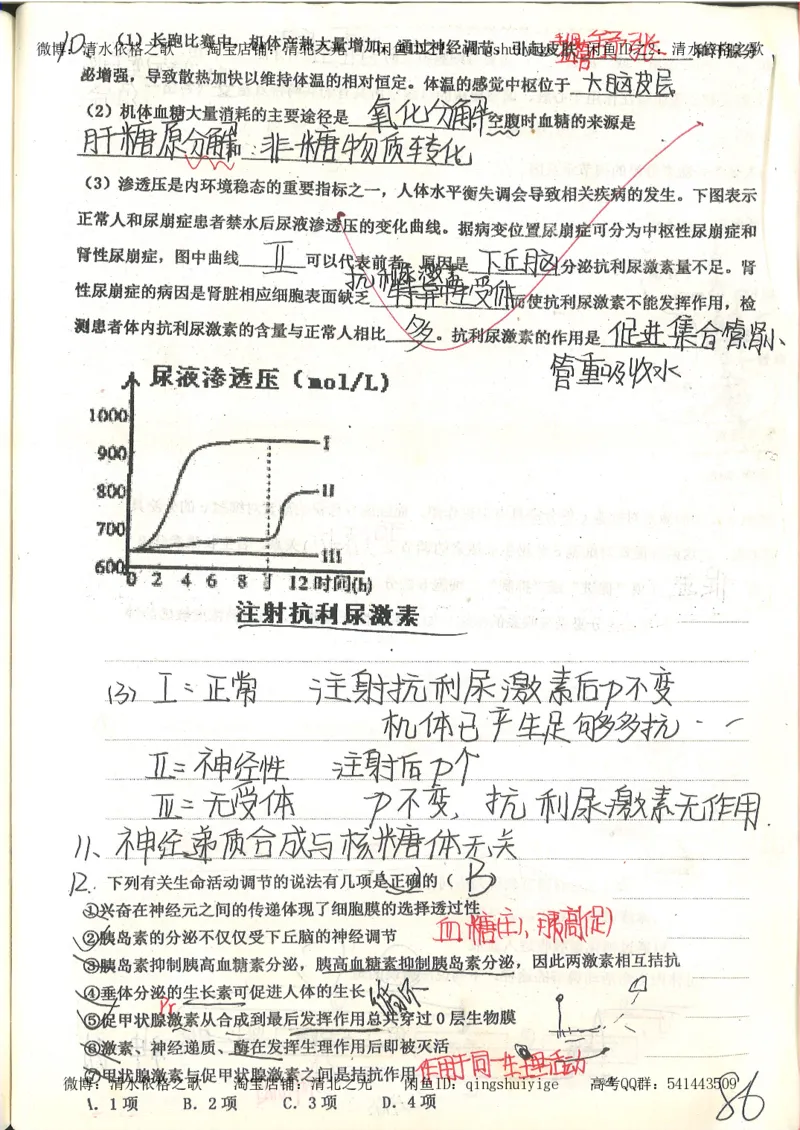 10. (1) 长跑比赛中，机体产热大量增加，通过神经调节，引起皮肤 血管舒张 和汗腺分
微博：清水依格之歌 淘宝店铺：清北之光 闲鱼ID：qingshuiyige 闲鱼ID：清水依格之歌
泌增强，导致散热加快以维持体温的相对恒定。体温的感觉中枢位于 大脑皮层
（2）机体血糖大量消耗的主要途径是 氧化分解 ，空腹时血糖的来源是
肝糖原分解 和 非糖物质转化
（3）渗透压是内环境稳态的重要指标之一，人体水平衡失调会导致相关疾病的发生。下图表示
正常人和尿崩症患者禁水后尿液渗透压的变化曲线。据病变位置尿崩症可分为中枢性尿崩症和
肾性尿崩症，图中曲线 Ⅱ 可以代表前者，原因是 下丘脑 分泌抗利尿激素量不足。肾
抗利尿激素
性尿崩症的病因是肾脏相应细胞表面缺乏 特异性受体 而使抗利尿激素不能发挥作用，检
测患者体内抗利尿激素的含量与正常人相比 多 。抗利尿激素的作用是 促进集合管肾小
管重吸收水
尿液渗透压（mol/L）
1000
900
800
700
600
I
II
III
0 2 4 6 8 12 时间(h)
注射抗利尿激素
(3) Ⅰ=正常 注射抗利尿激素后P不变
机体已产生足够多抗……
Ⅱ=神经性 注射后P个
Ⅲ=无受体 P不变，抗利尿激素无作用.
11、神经递质合成与核糖体无关
12. 下列有关生命活动调节的说法有几项是正确的（ B ）
①兴奋在神经元之间的传递体现了细胞膜的选择透过性
②胰岛素的分泌不仅仅受下丘脑的神经调节 血糖(主)，胰高(促)
③胰岛素抑制胰高血糖素分泌，胰高血糖素抑制胰岛素分泌，因此两激素相互拮抗
④垂体分泌的生长素可促进人体的生长
Pr 循环
⑤促甲状腺激素从合成到最后发挥作用总共穿过0层生物膜
⑥激素、神经递质、酶在发挥生理作用后即被灭活
⑦甲状腺激素与促甲状腺激素之间是拮抗作用 作用于同一生理活动
微博：清水依格之歌 淘宝店铺：清北之光 闲鱼ID：qingshuiyige 高考QQ群：541443509
A. 1项 B. 2项 C. 3项 D. 4项
86